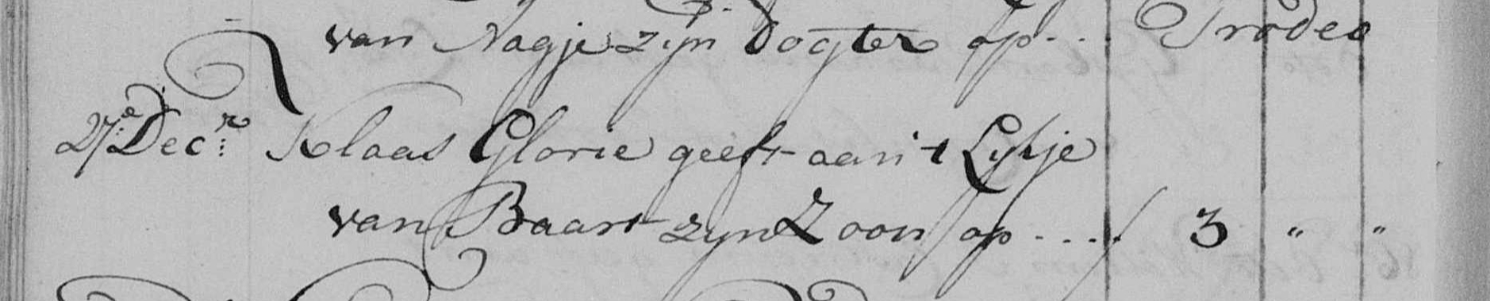 van Aagje zijn dogter op ... Prodeo
27e Decr. Klaas Glorie geeft aan 't Lijkje
van Baart zyn Zoon op .... f 3 " "